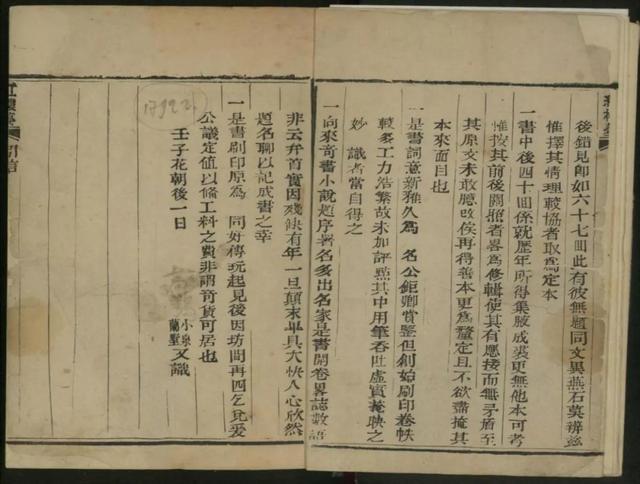 後錯見即如六十七囬此有彼無題同文異燕石莫辨茲
惟擇其情理較協者取為定本
一書中後四十囬係就歷年所得集腋成裘更無他本可考
惟按其前後關照者畧為修輯使其有應接而無矛盾至
其原文未敢臆改俟再得善本更為釐定且不欲盡掩其
本來面目也
一是書詞意新雅久為 名公鉅卿賞鑒但創始刷印卷帙
較多工力浩繁故未加評點其中用筆吞吐虛實掩映之
妙 識者當自得之
一向來奇書小說題序署名多出名家是書開卷畧誌數語
非云弁首實因殘缺有年一旦顛末畢具大快人心欣然
題名聊以記成書之幸
一是書刷印原為 同好傳玩起見後因坊間再四乞兌爰
公議定值以備工料之費非謂奇貨可居也
壬子花朝後一日
小泉
蘭墅 又識
17922